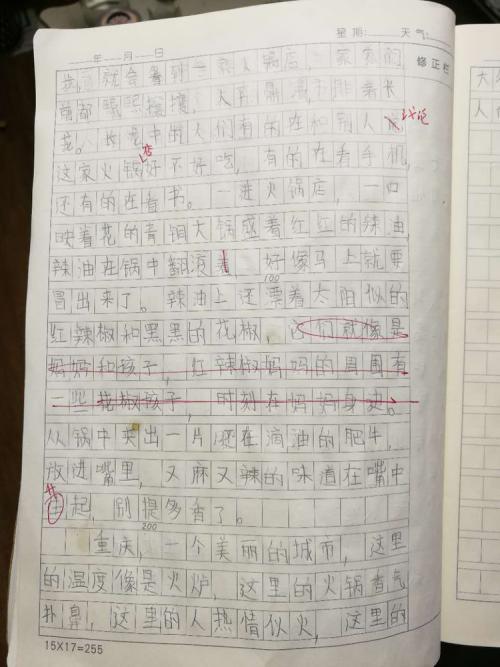 星期:____天气:____
__年__月__日
修正栏
步,就会看到一家火锅店,一家家门
前都熙熙攘攘,人声鼎沸,都排着长
花。长龙中的人们有的在和别人讨论
这家火锅店好不好吃,有的在看手机,
还有的在看书。一进火锅店,一口
映着花的青铜大锅盛着红红的辣油,
辣油在锅中翻滚着,好像马上就要
100
冒出来了。辣油上还漂着太阳似的
红辣椒和黑黑的花椒,它们就像是
妈妈和孩子,红辣椒妈妈的周围有
一些花椒孩子,时刻在妈妈身边。
从锅中夹出一片还在滴油的肥牛,
放进嘴里,又麻又辣的味道在嘴中
升起,别提多香了。
200
重庆,一个美丽的城市,这里
的温度像是火炉,这里的火锅香气
扑鼻,这里的人热情似火,这里的
15X17=255